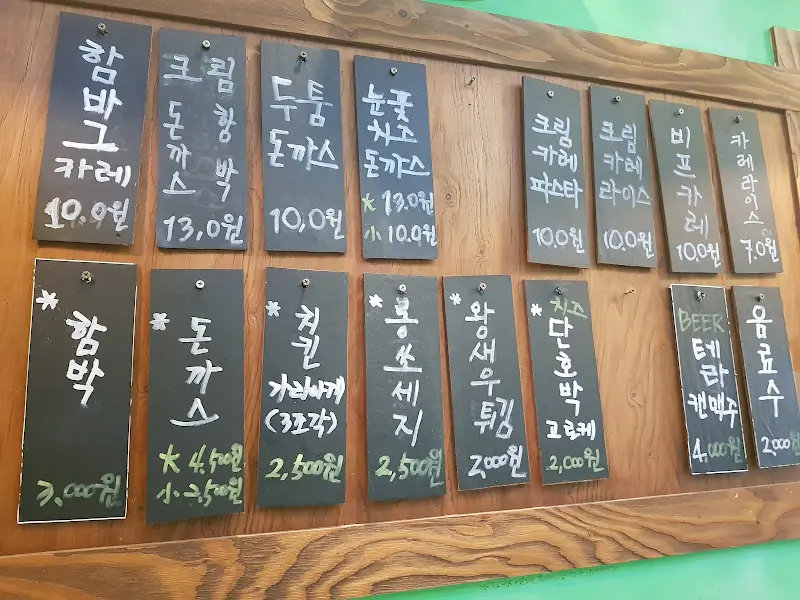 함바그
카레
10.0원
크림
돈까스
함박
13,0원
두툼
돈까스
10,0원
눈꽃
치즈
돈까스
大 13.0원
小 10.0원
크림
카레
파스타
10.0원
크림
카레
라이스
10.0원
비프카레
10.0원
카레라이스
7.0원
* 함박
3,000원
* 돈까스
大 4,500원
小 2,500원
* 치킨
가라아게
(3조각)
2,500원
* 롱쏘세지
2,500원
* 왕새우
튀김
2,000원
* 치즈
단호박
고로케
2,000원
BEER
테라
캔맥주
4,000원
음료수
2,000원